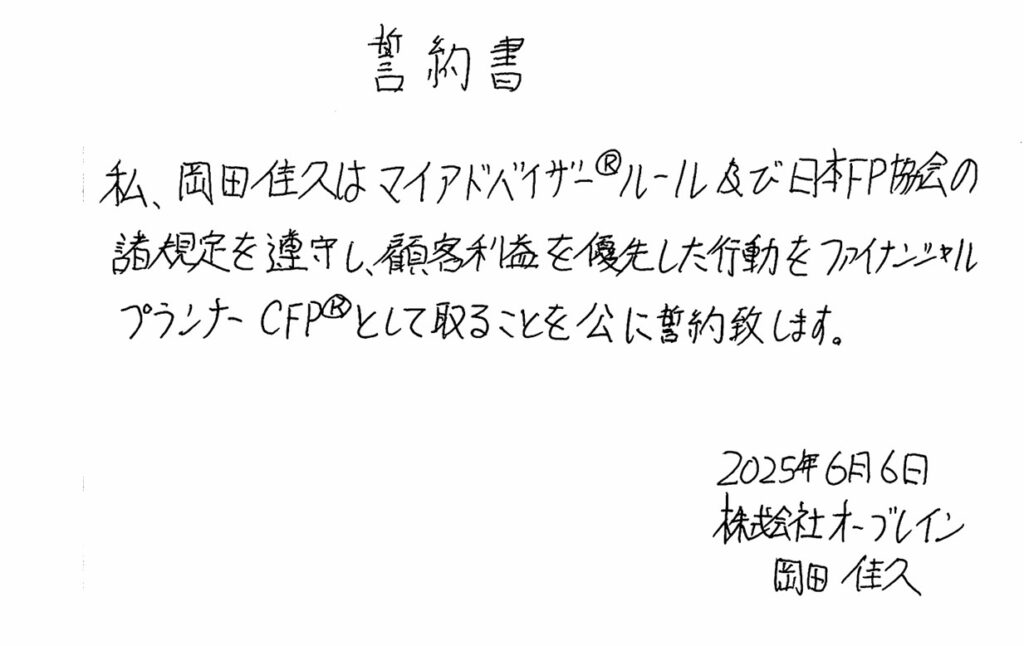 誓約書
私、岡田佳久はマイアドバイザー®ルール及び日本FP協会の
諸規定を遵守し、顧客利益を優先した行動をファイナンシャル
プランナーCFP®として取ることを公に誓約致します。
2025年6月6日
株式会社オーブレイン
岡田 佳久